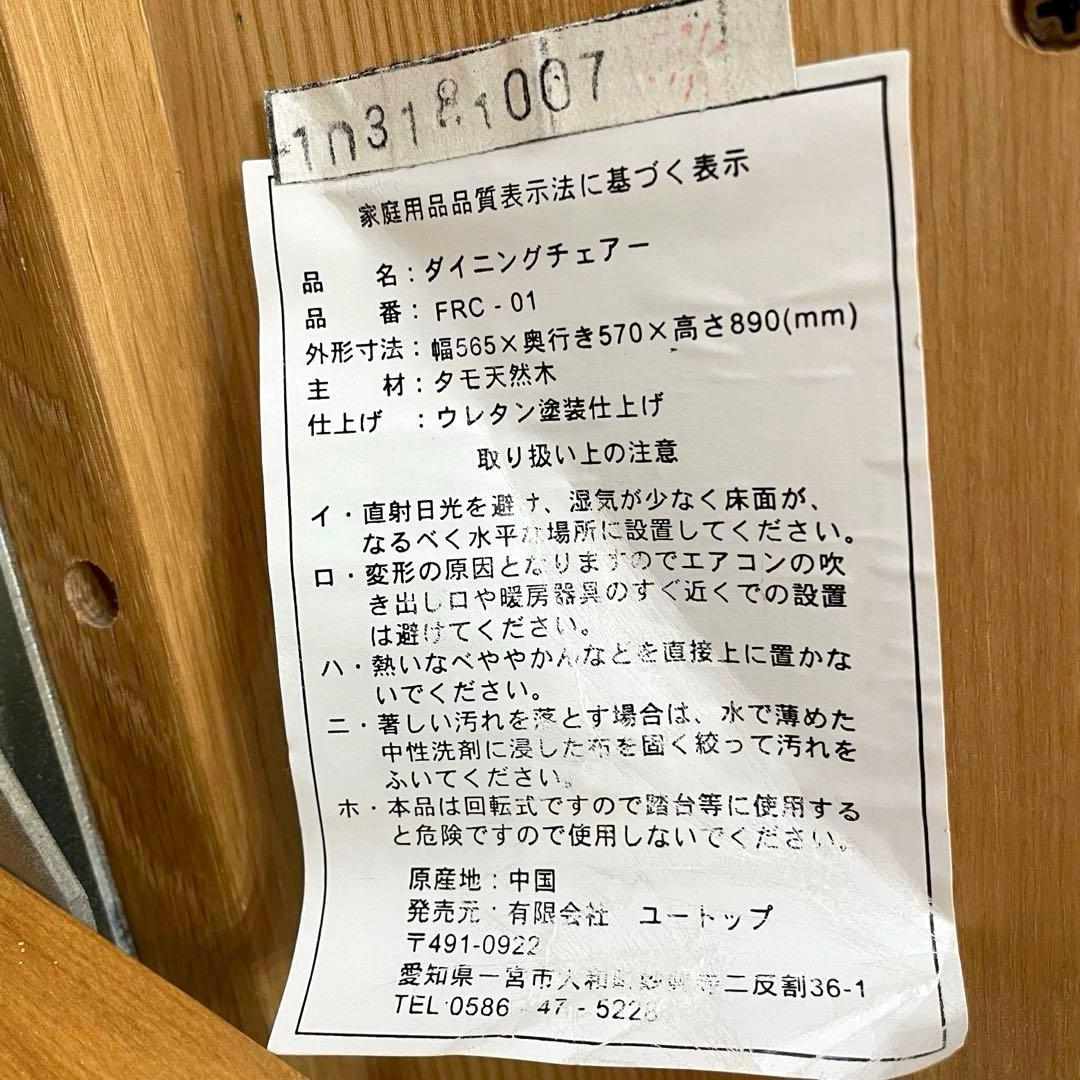 1n3181007
家庭用品品質表示法に基づく表示
品　　名：ダイニングチェアー
品　　番：FRC - 01
外形寸法：幅565×奥行き570×高さ890(mm)
主　　材：タモ天然木
仕上げ　：ウレタン塗装仕上げ
取り扱い上の注意
イ・直射日光を避け、湿気が少なく床面が、
なるべく水平な場所に設置してください。
ロ・変形の原因となりますのでエアコンの吹
き出し口や暖房器具のすぐ近くでの設置
は避けてください。
ハ・熱いなべややかんなどを直接上に置かな
いでください。
ニ・著しい汚れを落とす場合は、水で薄めた
中性洗剤に浸した布を固く絞って汚れを
ふいてください。
ホ・本品は回転式ですので踏台等に使用する
と危険ですので使用しないでください。
原産地：中国
発売元：有限会社　ユートップ
〒491-0922
愛知県一宮市大和町妙興寺二反割36-1
TEL 0586 - 47 - 5228